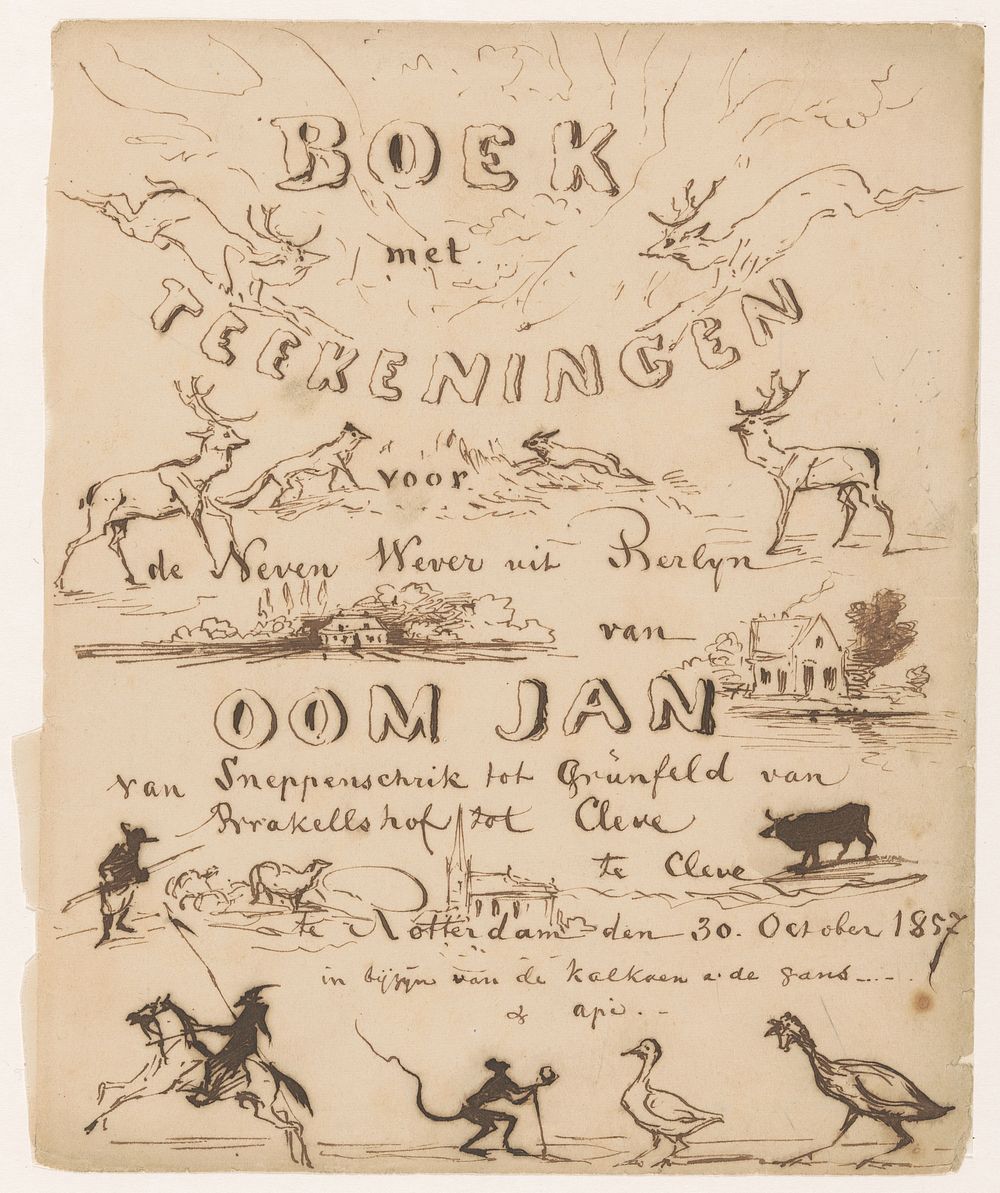 BOEK
met
TEEKENINGEN
voor
de Neven Wever uit Berlyn
van
OOM JAN
van Sneppenschrik tot Grünfeld van
Brakellshof tot Cleve
te Cleve
te Rotterdam den 30. October 1857
in bijzyn van de kalkoen e. de gans
api.